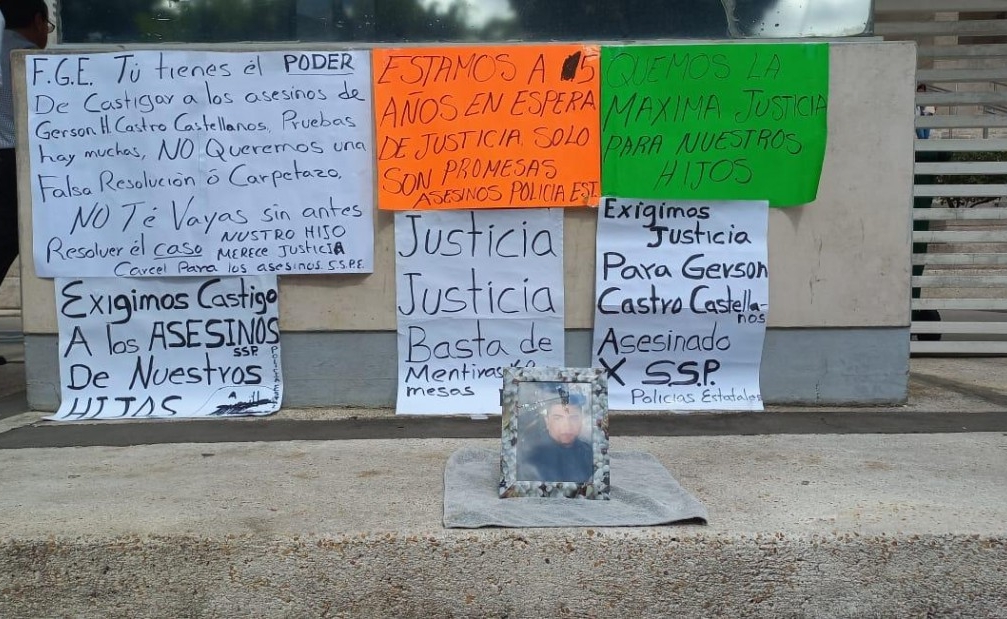 F.G.E. Tú tienes él PODER
De Castigar a los asesinos de
Gerson H. Castro Castellanos, Pruebas
hay muchas, NO Queremos una
Falsa Resolución ó Carpetazo.
NO Té Vayas sin antes
Resolver él caso NUSTRO HIJO
MERECE JUSTICIA
Carcel Para los asesinos S.S.P.E.
ESTAMOS A 5
AÑOS EN ESPERA
DE JUSTICIA. SOLO
SON PROMESAS
ASESINOS POLICIA EST
QUEMOS LA
MAXIMA JUSTICIA
PARA NUESTROS
HIJOS
Exigimos Castigo
A los ASESINOS
SSP.
De Nuestros
HIJOS
Justicia
Justicia
Basta de
Mentiras
mesas
Exigimos
Justicia
Para Gerson
Castro Castella-
nos
Asesinado
X S.S.P.
Policias Estatales